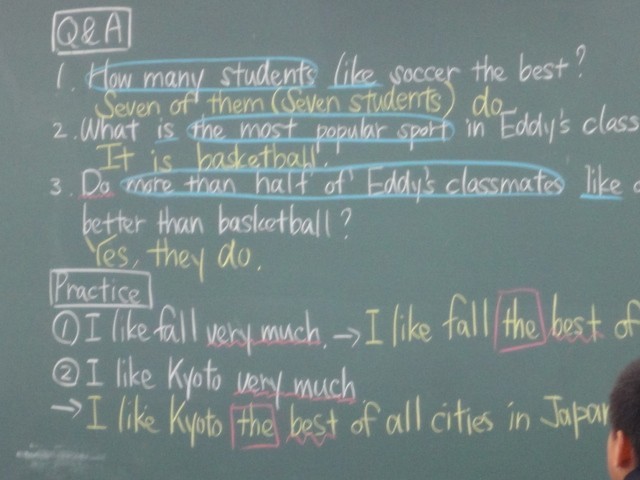 Q&A
1. How many students like soccer the best?
Seven of them (Seven students) do
2. What is the most popular sport in Eddy's class
It is basketball.
3. Do more than half of Eddy's classmates like
better than basketball?
Yes, they do.
Practice
① I like fall very much. → I like fall the best of
② I like Kyoto very much
→ I like Kyoto the best of all cities in Japan